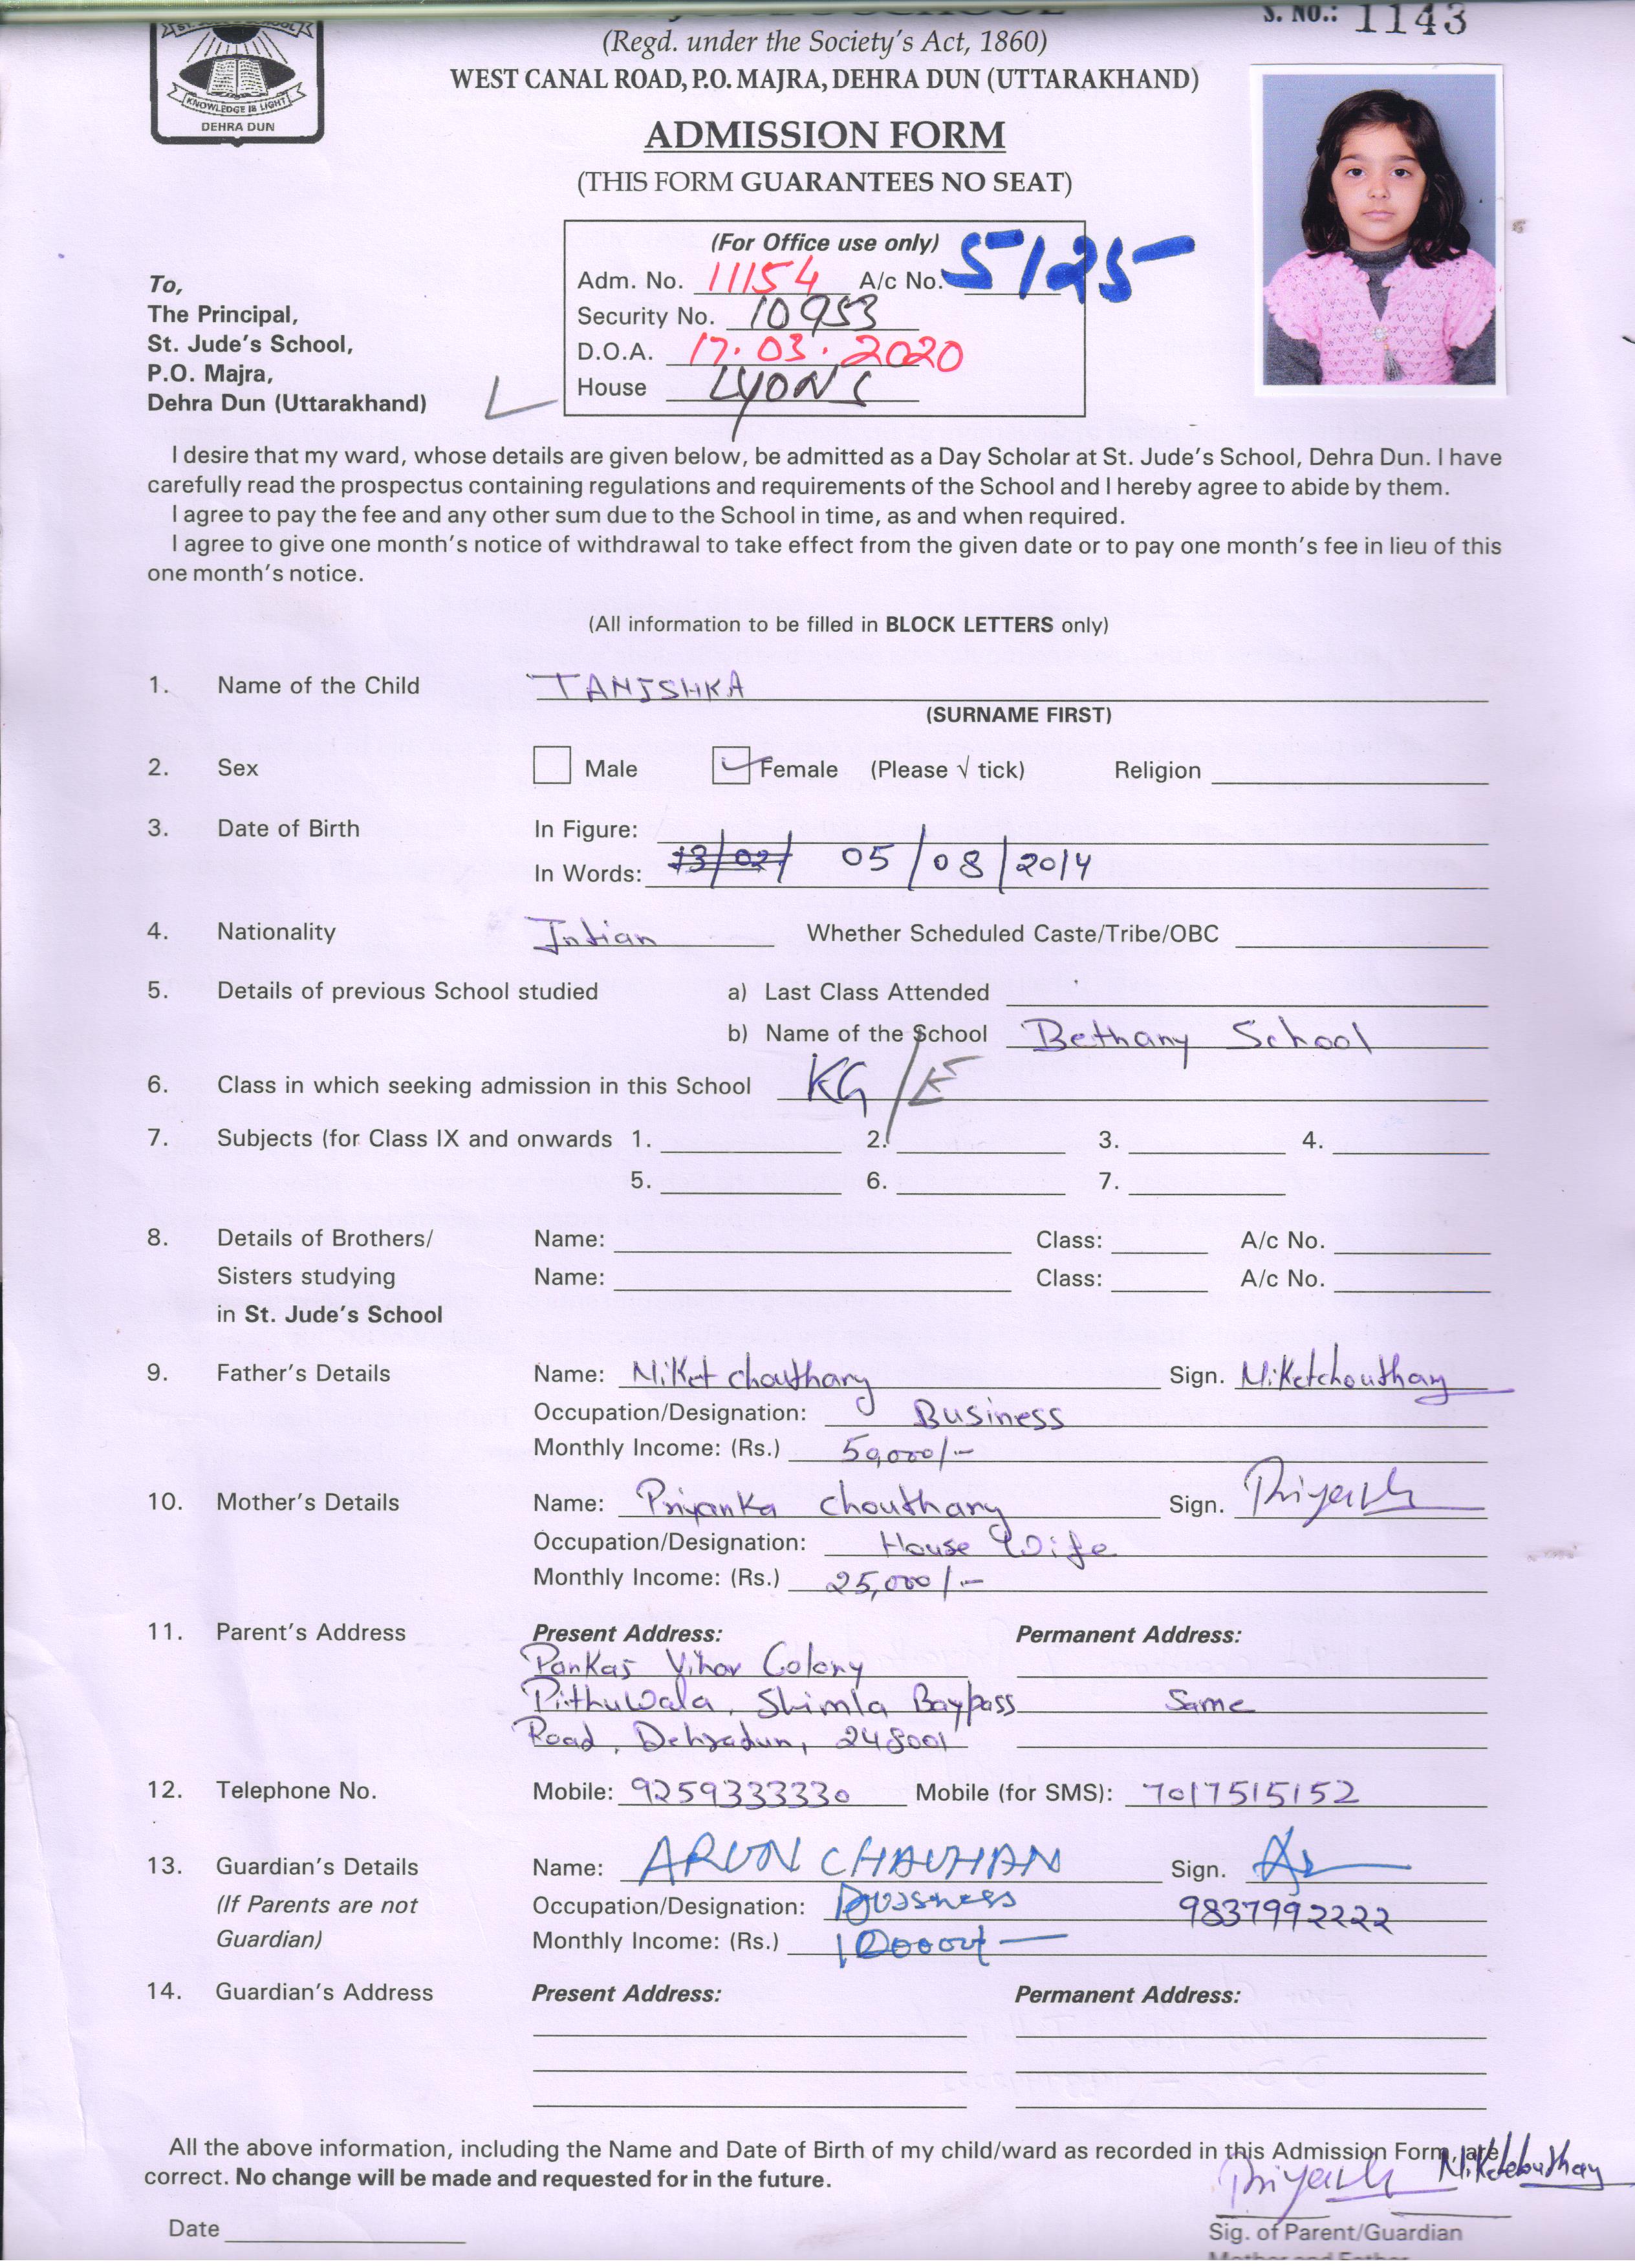 S. NO.: 1143
(Regd. under the Society's Act, 1860)
WEST CANAL ROAD, P.O. MAJRA, DEHRA DUN (UTTARAKHAND)
KNOWLEDGE IS LIGHT
DEHRA DUN
ADMISSION FORM
(THIS FORM GUARANTEES NO SEAT)
(For Office use only)
Adm. No. 11154 A/c No. 5125
Security No. 10953
D.O.A. 17.03.2020
House LYONS
To,
The Principal,
St. Jude's School,
P.O. Majra,
Dehra Dun (Uttarakhand)
I desire that my ward, whose details are given below, be admitted as a Day Scholar at St. Jude's School, Dehra Dun. I have
carefully read the prospectus containing regulations and requirements of the School and I hereby agree to abide by them.
I agree to pay the fee and any other sum due to the School in time, as and when required.
I agree to give one month's notice of withdrawal to take effect from the given date or to pay one month's fee in lieu of this
one month's notice.
(All information to be filled in BLOCK LETTERS only)
1. Name of the Child TANISHKA
(SURNAME FIRST)
2. Sex Male Female (Please √ tick) Religion
3. Date of Birth In Figure:
In Words: 13/02/ 05/08/2014
4. Nationality Intian Whether Scheduled Caste/Tribe/OBC
5. Details of previous School studied a) Last Class Attended
b) Name of the School Bethany School
6. Class in which seeking admission in this School KG/E
7. Subjects (for Class IX and onwards 1. 2. 3. 4.
5. 6. 7.
8. Details of Brothers/ Name: Class: A/c No.
Sisters studying Name: Class: A/c No.
in St. Jude's School
9. Father's Details Name: Niket Chouthary Sign. Niketchouthary
Occupation/Designation: Business
Monthly Income: (Rs.) 50,000/-
10. Mother's Details Name: Priyanka Chouthary Sign.
Occupation/Designation: House Wife
Monthly Income: (Rs.) 25,000/-
11. Parent's Address Present Address: Permanent Address:
Pankaj Vihar Colony
Pithuwala, Shimla Baypass Same
Road, Dehradun, 248001
12. Telephone No. Mobile: 9259333330 Mobile (for SMS): 7017515152
13. Guardian's Details Name: ARUN CHAUHAN Sign.
(If Parents are not Occupation/Designation: Bussness 9837992222
Guardian) Monthly Income: (Rs.)
14. Guardian's Address Present Address: Permanent Address:
All the above information, including the Name and Date of Birth of my child/ward as recorded in this Admission Form, are
correct. No change will be made and requested for in the future.
Date
Sig. of Parent/Guardian